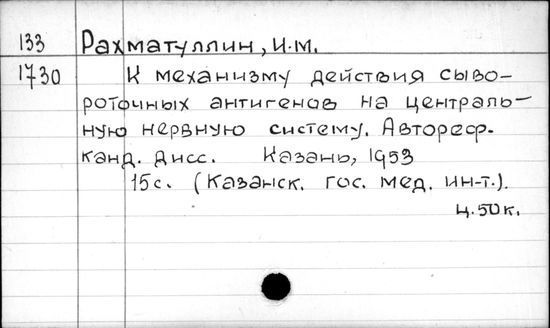 133 Рахматуллин, И.М.
1730 К механизму действия сыво-
роточных антигенов на централь-
ную нервную систему. Автореф.
канд. дисс. Казань, 1953
15с. (Казанск. гос. мед. ин-т.).
ц. 50 к.